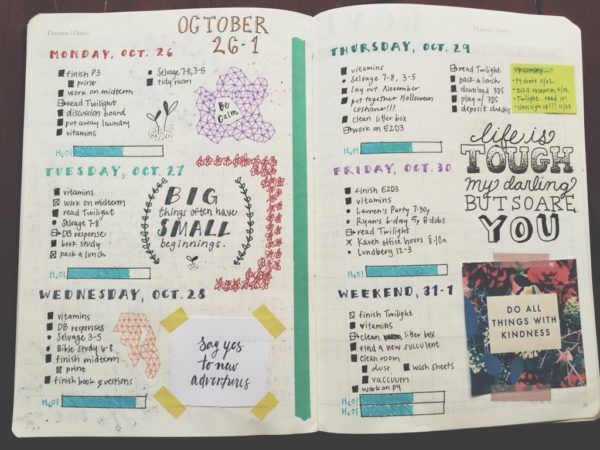 Datum / Date:
OCTOBER
26-1
MONDAY, OCT. 26
finish P3
print
work on midterm
read Twilight
discussion board
put away laundry
vitamins
Selvage 7-8, 3-5
tidy room
Be
Calm
H2O!
TUESDAY, OCT. 27
vitamins
work on midterm
read Twilight
Selvage 7-8
DB response
book study
pack a lunch
H2O!
BIG
things often have
SMALL
beginnings.
WEDNESDAY, OCT. 28
vitamins
DB responses
Selvage 3-5
Bible Study 6-8
finish midterm
print
finish book questions
H2O!
say yes
to new
adventures
Datum / Date:
THURSDAY, OCT. 29
vitamins
Selvage 7-8, 3-5
lay out November
put together Halloween
costume!!!
clean litter box
work on E2D3
read Twilight
pack a lunch
download 3DS
play w/ 3DS
deposit checks
H2O!
upcoming...
P4 draft 11/02
Twilight - read it!
class sign up!!!
life is
TOUGH
my darling
BUT SO ARE
YOU
FRIDAY, OCT. 30
finish E2D3
vitamins
Lauren's Party 7:30p
Ryan's b-day 5p @ dubs
read Twilight
Karen office hours 8-10a
Lundberg 12-3
H2O!
WEEKEND, 31-1
finish Twilight
vitamins
clean litter box
find a new succulent
clean room
dust
wash sheets
vaccuum
work on P4
H2O!
H2O!
DO ALL
THINGS WITH
KINDNESS